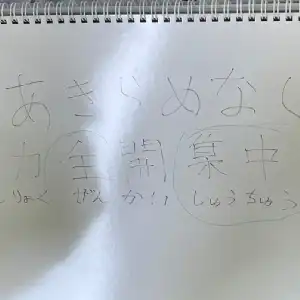 あきらめなし
力全開集中
りょくぜんかいしゅうちゅう